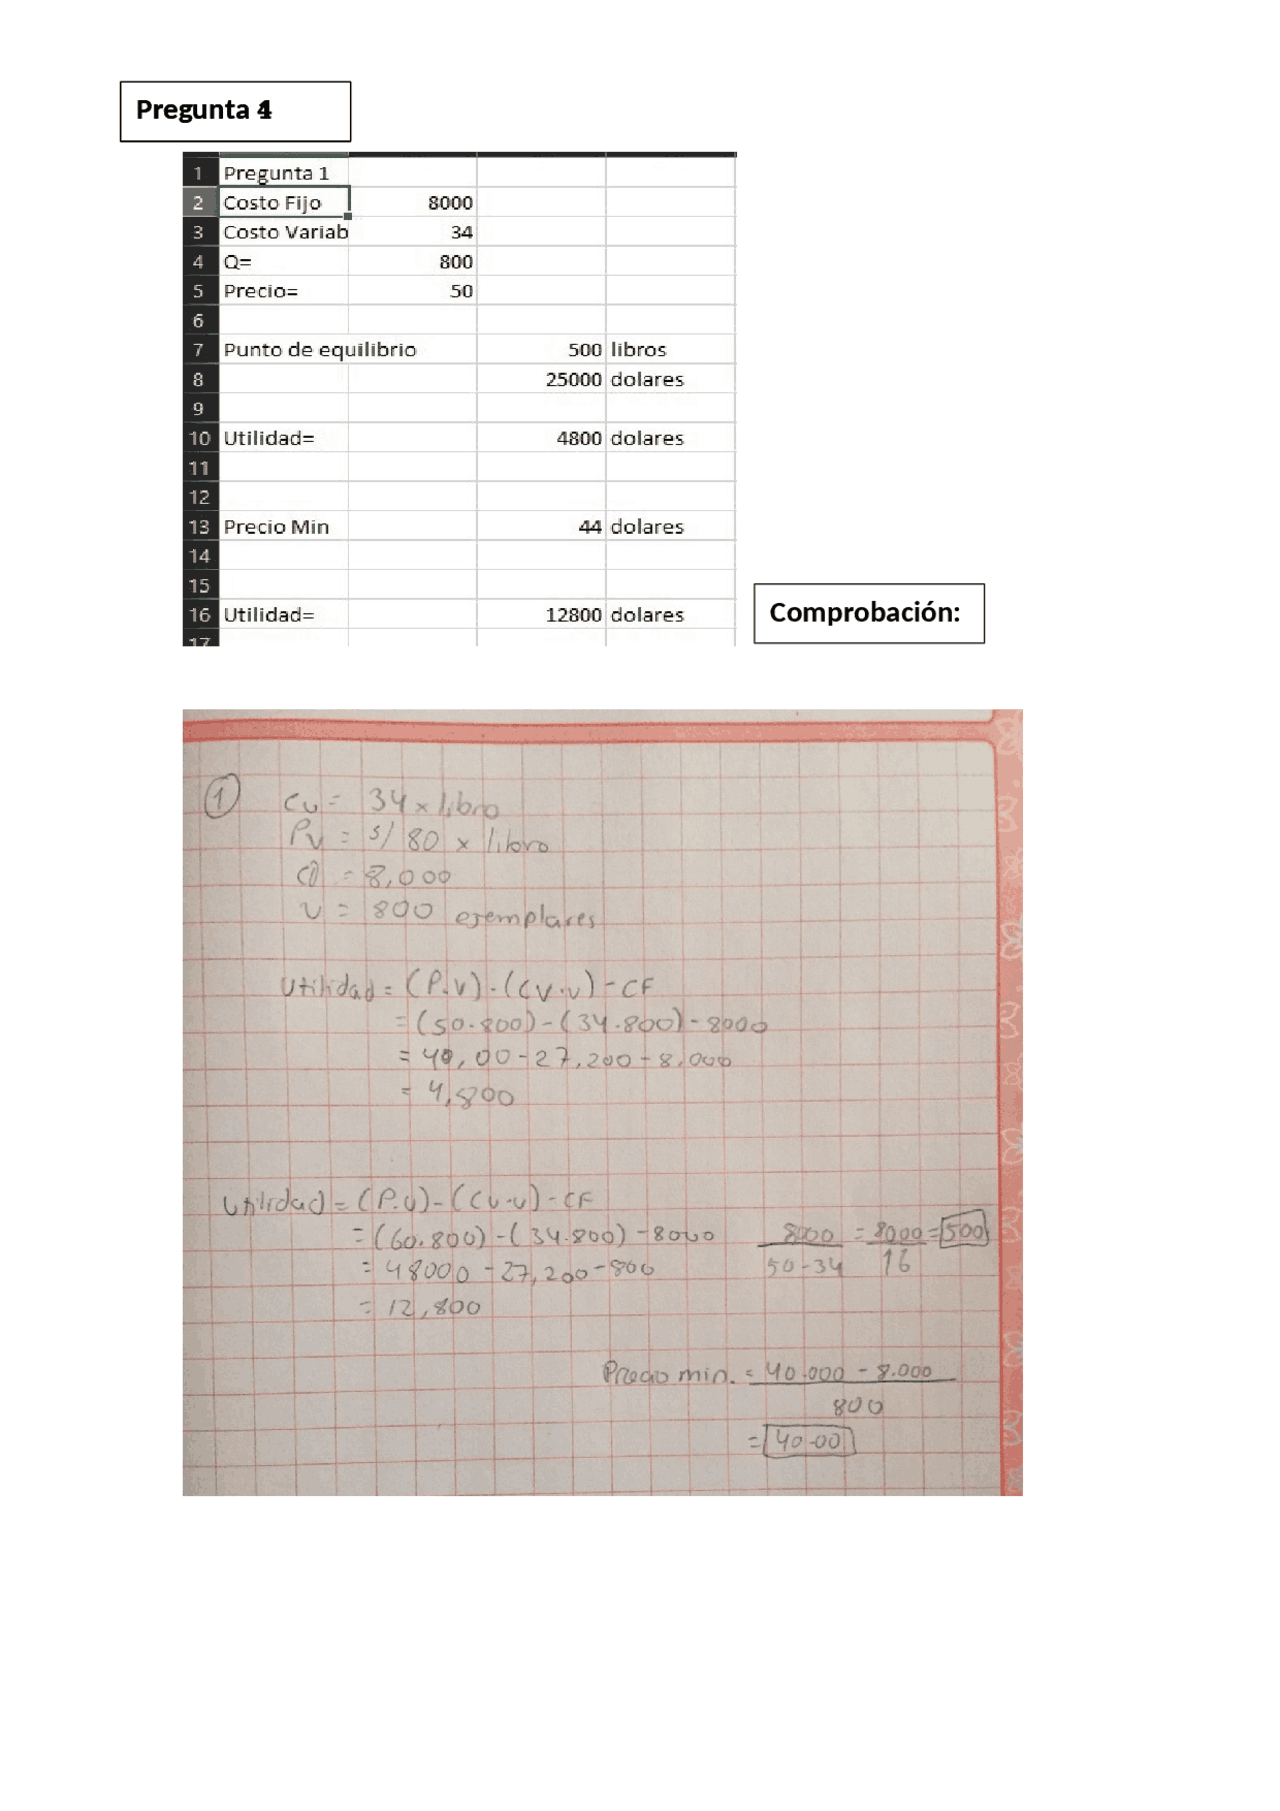 Pregunta 4
1 Pregunta 1
2 Costo Fijo 8000
3 Costo Variab 34
4 Q= 800
5 Precio= 50
6
7 Punto de equilibrio 500 libros
8 25000 dolares
9
10 Utilidad= 4800 dolares
11
12
13 Precio Min 44 dolares
14
15
16 Utilidad= 12800 dolares
17
Comprobación:
1 Cv = 34 x libro
Pv = s/ 80 x libro
= 8,000
v = 800 ejemplares
Utilidad = (P.v) - (Cv.v) - CF
= (50.800) - (34.800) - 8000
= 40,00 - 27,200 - 8.000
= 4,800
Utilidad = (P.v) - (Cv.v) - CF
= (60.800) - (34.800) - 8000
8000 / 50-34 = 8000 / 16 = 500
= 48000 - 27,200 - 800
= 12,800
Precio min. = 40.000 - 8.000
800
= 40.00